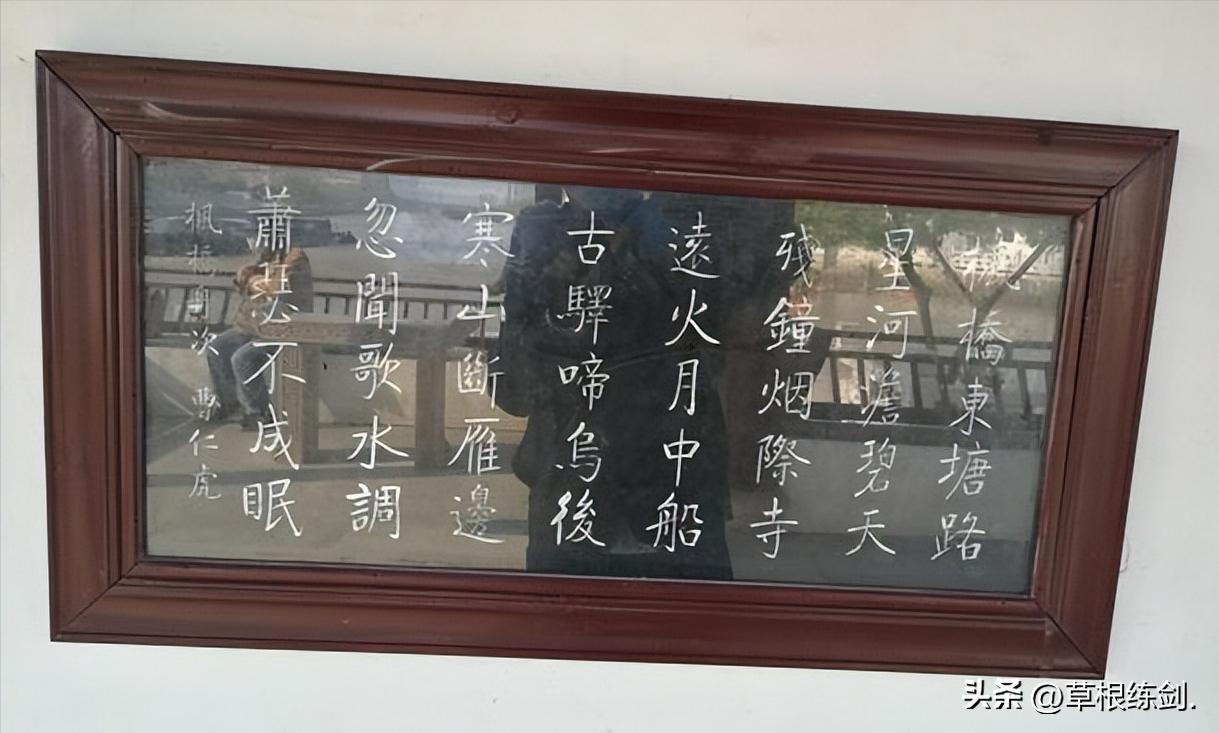 楓橋東塘路
星河澹碧天
殘鐘烟際寺
遠火月中船
古驛啼烏後
寒山斷雁邊
忽聞歌水調
蕭瑟不成眠
楓橋夜次 曹仁虎
头条 @草根练剑.